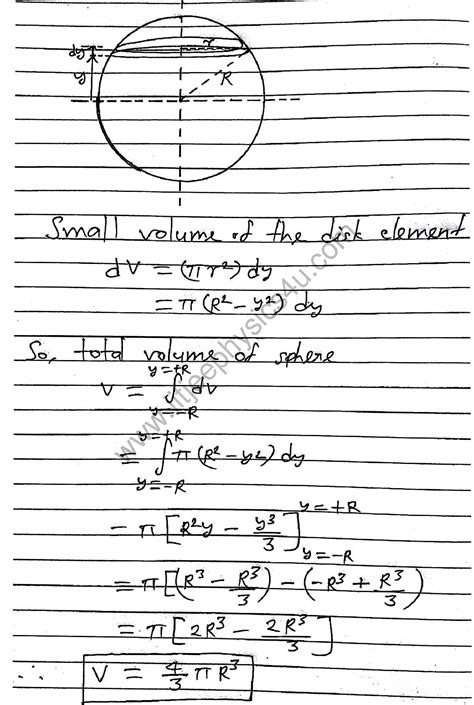 dy
r
y
R
Small volume of the disk element
dV = (πr²) dy
= π (R² – y²) dy
So, total volume of sphere
y=+R
V = ∫ dv
y=-R
y=+R
= ∫ π (R² – y²) dy
y=-R
– π [R²y – y³/3] y=+R
y=-R
= π [(R³ – R³/3) – (-R³ + R³/3)
= π [2R³ – 2R³/3]
∴ V = 4/3 πR³
www.iitjeephysics4u.com